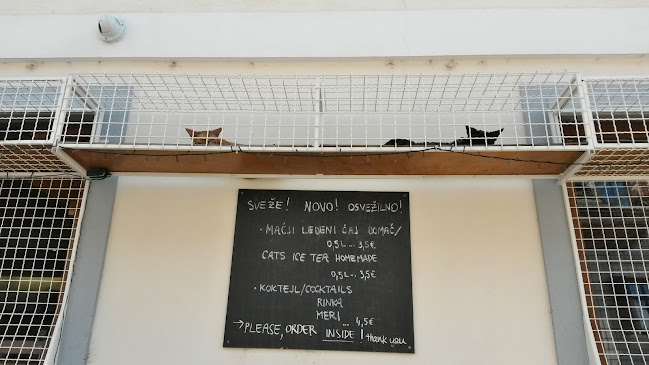 SVEŽE! NOVO! OSVEŽILNO!
· MAČJI LEDENI ČAJ DOMAČ/
0,5L... 3,5€
CATS ICE TEA HOMEMADE
0,5L... 3,5€
· KOKTEJL/COCKTAILS
RINKA
MERI
... 4,5€
→PLEASE, ORDER INSIDE! thank you